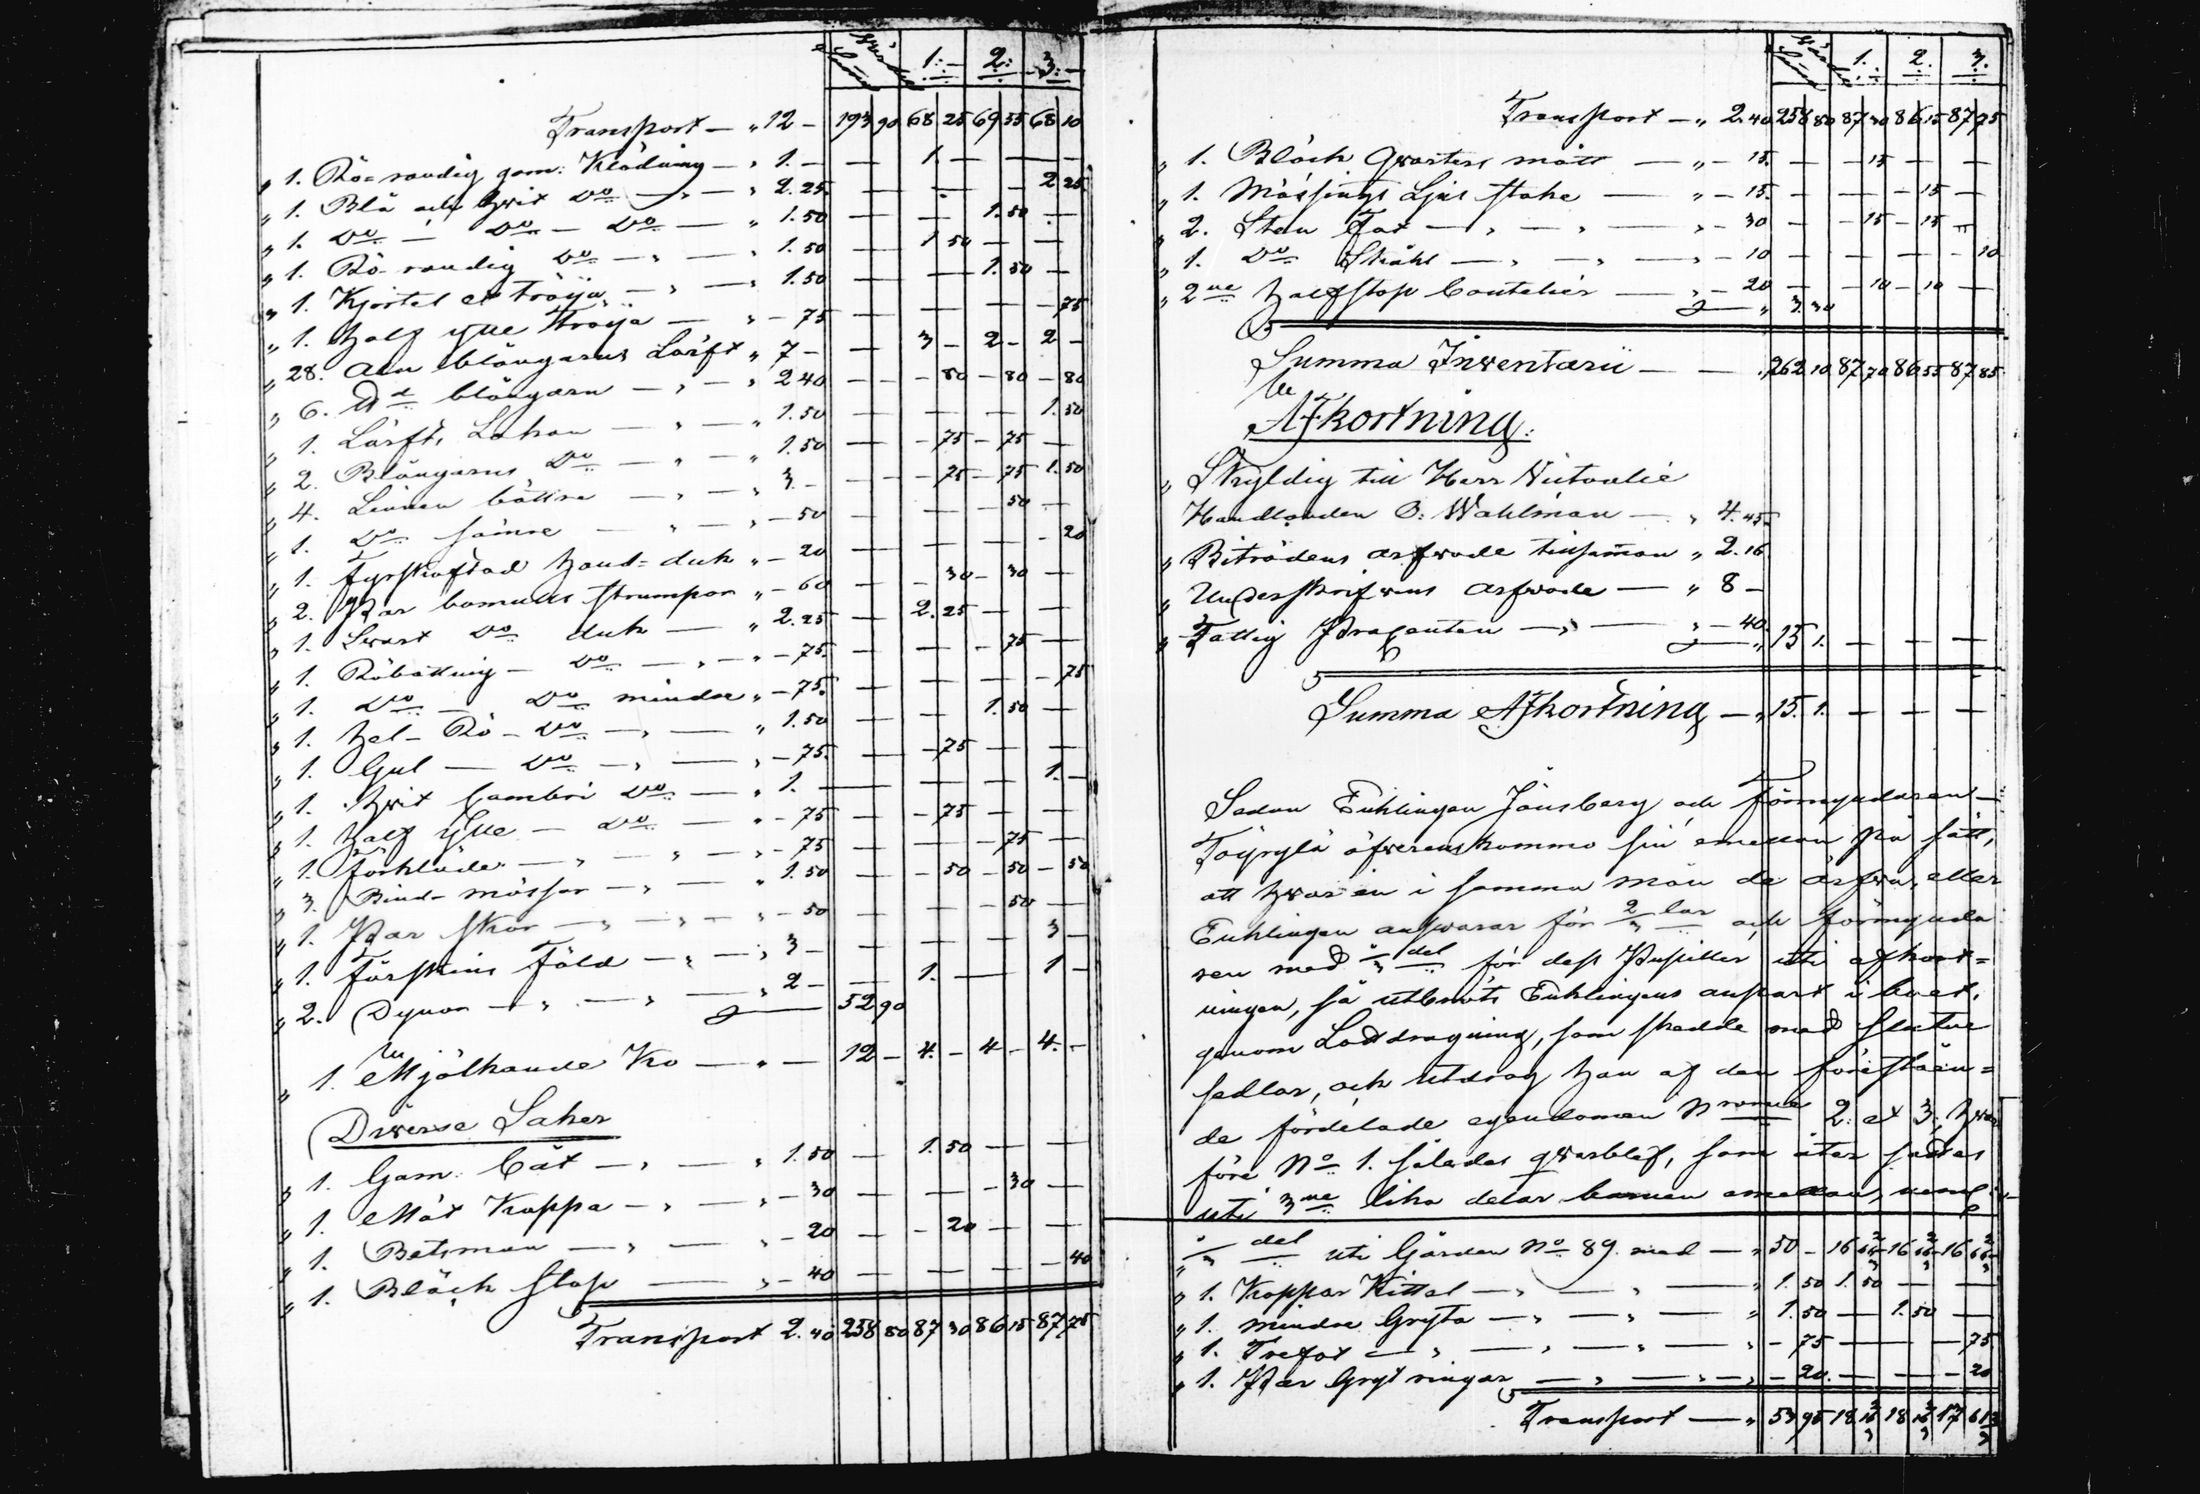 Wärde Suma 1. 2. 3.
Transport — „ 12 — 193 90 68 25 69 55 68 10
„ 1. Rö-randig gam: Klädning — „ 1. — — 1 — — —
„ 1. Blå och hwit Do — „ 2.25. — — — 2 25
„ 1. Do — Do — Do — „ 1.50 — — 1.50 —
„ 1. Rö-randig Do — „ 1.50 — 1 50 — —
„ 1. Kjortel et tröija — „ 1.50 — — 1.50 —
„ 1. half ylle tröija — „ — 75 — — — — 75
„ 28. Aln blångarns Lärft „ 7 — — 3 — 2 — 2 —
„ 6. blångarn — „ 2 40 — — 80 — 80 — 80
„ 1. Lärfts Lakan — „ 1.50 — — — 1.50
„ 2. Blångarns Do — „ 1.50 — — 75 — 75 —
„ 4. Linnen bättre — „ 3. — — — 75 — 75 1.50
„ 1. Do sämre — „ — 50 — — — 50 —
„ 1. fyrskaftad hand-duk „ — 20 — — — — 20
„ 2. Par bomulls strumpor „ — 60 — — 30 — 30 —
„ 1. Swart Do duk — „ 2.25 — 2.25 — —
„ 1. Röbottnig — Do — „ — 75. — — — 75 —
„ 1. Do — Do mindre „ — 75. — — — — 75
„ 1. hel-Rö-Do — „ 1.50 — — 1.50 —
„ 1. Gul — Do — „ — 75. — — 75 — —
„ 1. hwit Cambri Do — „ 1. — — — — 1. —
„ 1. half ylle — Do — „ — 75 — — 75 — —
„ 1. förkläde — „ — 75 — — — 75 —
„ 3. Bind-mössor — „ 1.50 — — 50 — 50 — 50
„ 1. Par skor — „ — 50 — — — 50 —
„ 1. fårskins Fäld — „ 3 — — — — 3 —
„ 2. Dynor — „ 2 — — 1. — 1 —
52 90
„ 1. Mjölkande Ko — „ — 12 — 4. — 4 — 4. —
Diverse Saker
„ 1. Gam: båt — „ 1.50 — 1.50 — —
„ 1. Mät Kappa — „ — 30 — — — 30 —
„ 1. Betsman — „ — 20 — — 20 — —
„ 1. Bläck stop — „ — 40 — — — — 40
Transport 2.40 258 80 87 30 86 15 87 75
Wärde Suma 1. 2. 3.
Transport — „ 2.40 258 80 87 30 86 15 87 75
„ 1. Bläck qwarters mått — „ — 15. — — 15 — —
„ 1. Mässings Ljus stake — „ — 15. — — — 15 —
„ 2. Sten Fat — „ — 30 — — 15 — 15 —
„ 1. Do Skåhl — „ — 10 — — — — 10
„ 2ne halfstops Bouteljer — „ — 20 — — 10 — 10 —
„ 3.30
Summa Inventarii — — 262 10 87 70 86 55 87 85
Afkortning:
„ Skyldig till Herr
Handlanden O: Wahlman — „ 4.45
„ Biträdens arfwode tillsaman „ 2.16
„ Underskrifwens arfwode — „ 8 —
„ Fattig Procenten — „ — 40.
„ 15 1. — — —
Summa Afkortning — „ 15. 1. — — —
Sedan Enklingen Jönsberg och förmyndaren
öfwerenskommo sin emellan på sätt,
att hwar en i samma mån de ärfwa, eller
Enklingen answarar för 2/3 lar och förmynda
ren med 1/3 del för dess Pupiller uti afkort=
ningen, så utbröts Enklingens anpart i boet,
genom Lottdragning, som skedde med slutne
sedlar, och utdrog han af den föreståen=
de fördelade egendomen N:romra 2: et 3, hwar
före No 1. således qwarblef, som åter sattes
uti 3ne lika delar barnen emellan, neml:
„ 1/3 del uti Gården No 89. med — „ 50 — 16 66 2/3 16 66 2/3 16 66 2/3
„ 1. Koppar Kittel — „ 1.50 1.50 — —
„ 1. mindre Gryta — „ 1.50 — 1.50 —
„ 1. Trefot — „ — 75 — — — 75
„ 1. Par Gryt ringar — „ — 20. — — — 20
Transport — „ 53 95 18 16 2/3 18 16 2/3 17 61 2/3